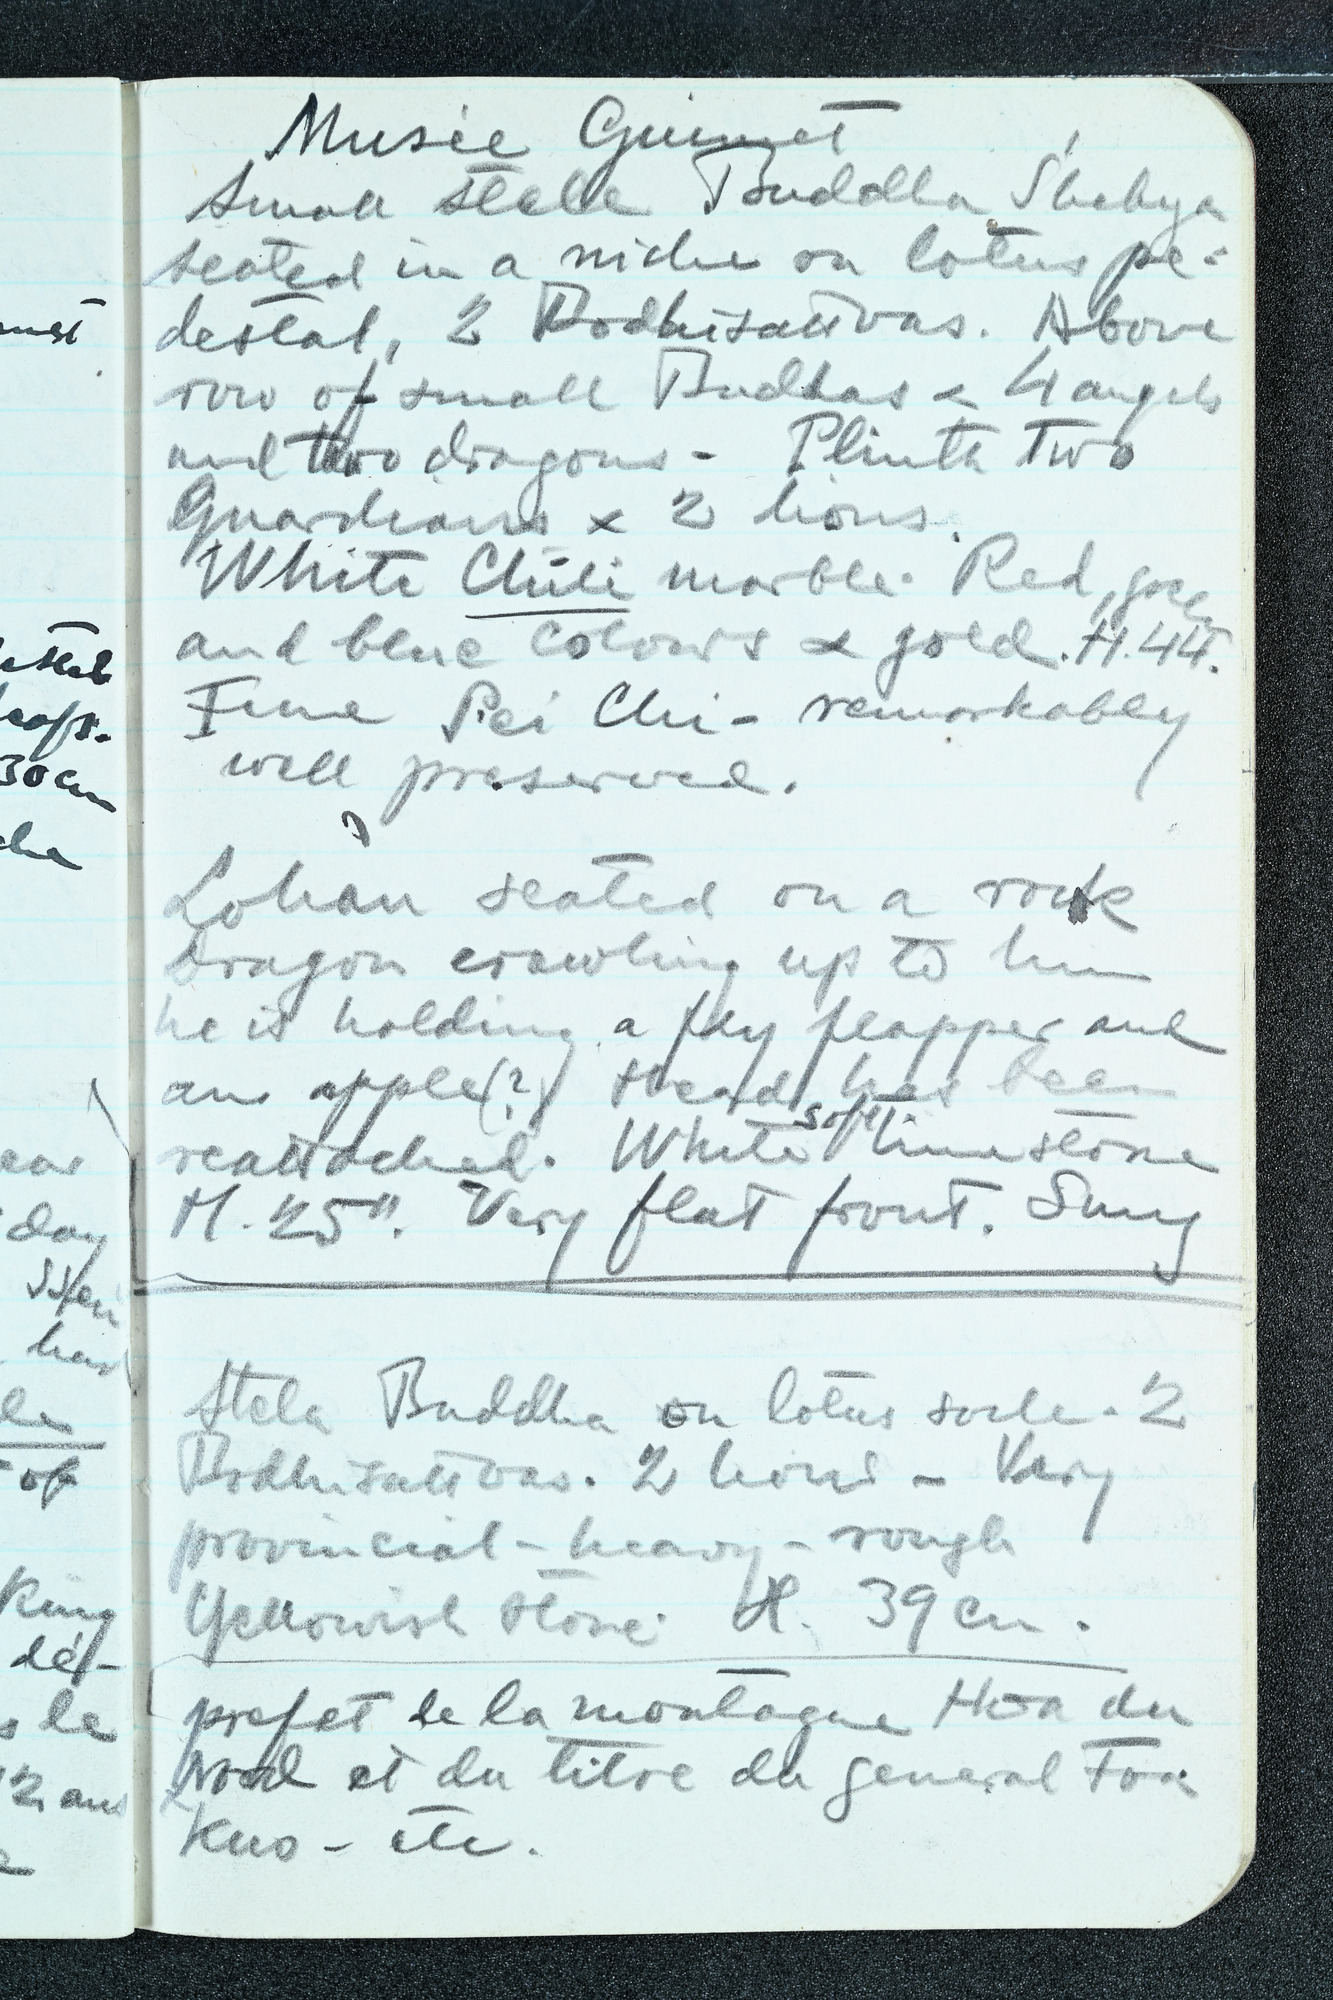 Musée Guimet
Small stele Buddha Shakya
seated in a niche on lotus pe-
destal, 2 Bodhisattvas. Above
row of small Budhas & 4 angels
and two dragons - Plinth two
Guardians & 2 lions.
White Chili marble. Red, green
and blue colours & gold. H. 44.
Fine Pei Chi - remarkably
well preserved.
Lohan seated on a rock
Dragon crawling up to him
he is holding a fly flapper and
an apple(?) Head has been
reattached. White soft limestone
H. 25". Very flat front. Sung
Stela Buddha on lotus socle. 2
Bodhisattvas. 2 lions - Very
provincial - heavy - rough
Yellowish stone. H. 39 cm.
prefet de la montagne Hoa du
Nord et du titre du general Fou
Kuo - etc.
30 cm
day
has
of
King
dé-
le
2 ans